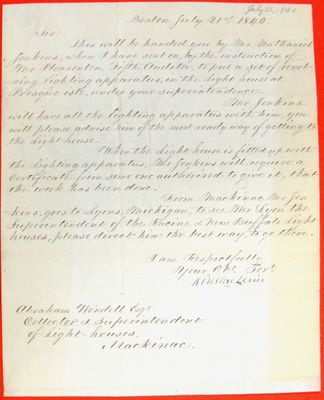 July 21, 1840
Boston July 21st 1840.
Sir,
This will be handed you, by Mr Nathaniel
Jenkins, whom I have sent on, by the instruction of
Mr Pleasonton, Fifth Auditor, to put a set of
Lighting Apparatus, in the Light house at
Presque isle, under your superintendence.
Mr Jenkins
will have all the Lighting apparatus with him, you
will please advise him of the most ready way of getting to
the Light house.
When the Light house is fitted up with
the Lighting apparatus, Mr Jenkins will require a
Certificate from some one authorized to give it, that
the work has been done.
From Mackinac Mr Jen-
kins, goes to Lyons, Michigan, to see Mr Lyon the
Superintendent of the Racine & New Buffalo Light
houses, please direct him the best way, to go there.
I am Respectfully
Your Obt Servt
Winslow Lewis
Abraham Wendell Esqr
Collector & Superintendent
of Light houses,
Mackinac.